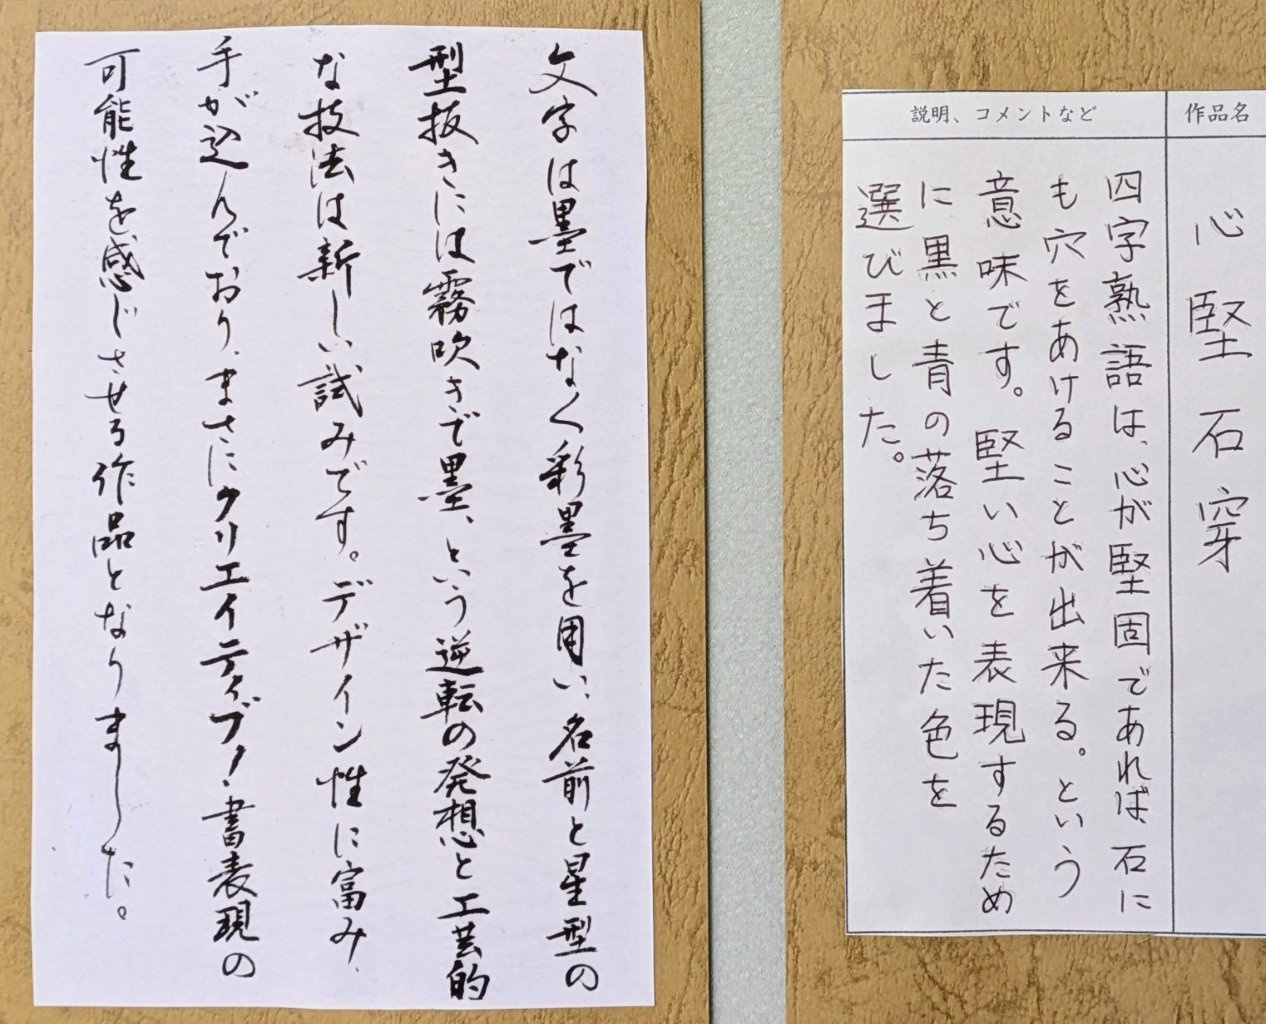 作品名
心堅石穿
説明、コメントなど
四字熟語は、心が堅固であれば石に
も穴をあけることが出来る。という
意味です。堅い心を表現するため
に黒と青の落ち着いた色を
選びました。
文字は墨ではなく彩墨を用い、名前と星型の
型抜きには霧吹きで墨、という逆転の発想と工芸的
な技法は新しい試みです。デザイン性に富み、
手が込んでおり、まさにクリエイティブ!書表現の
可能性を感じさせる作品となりました。